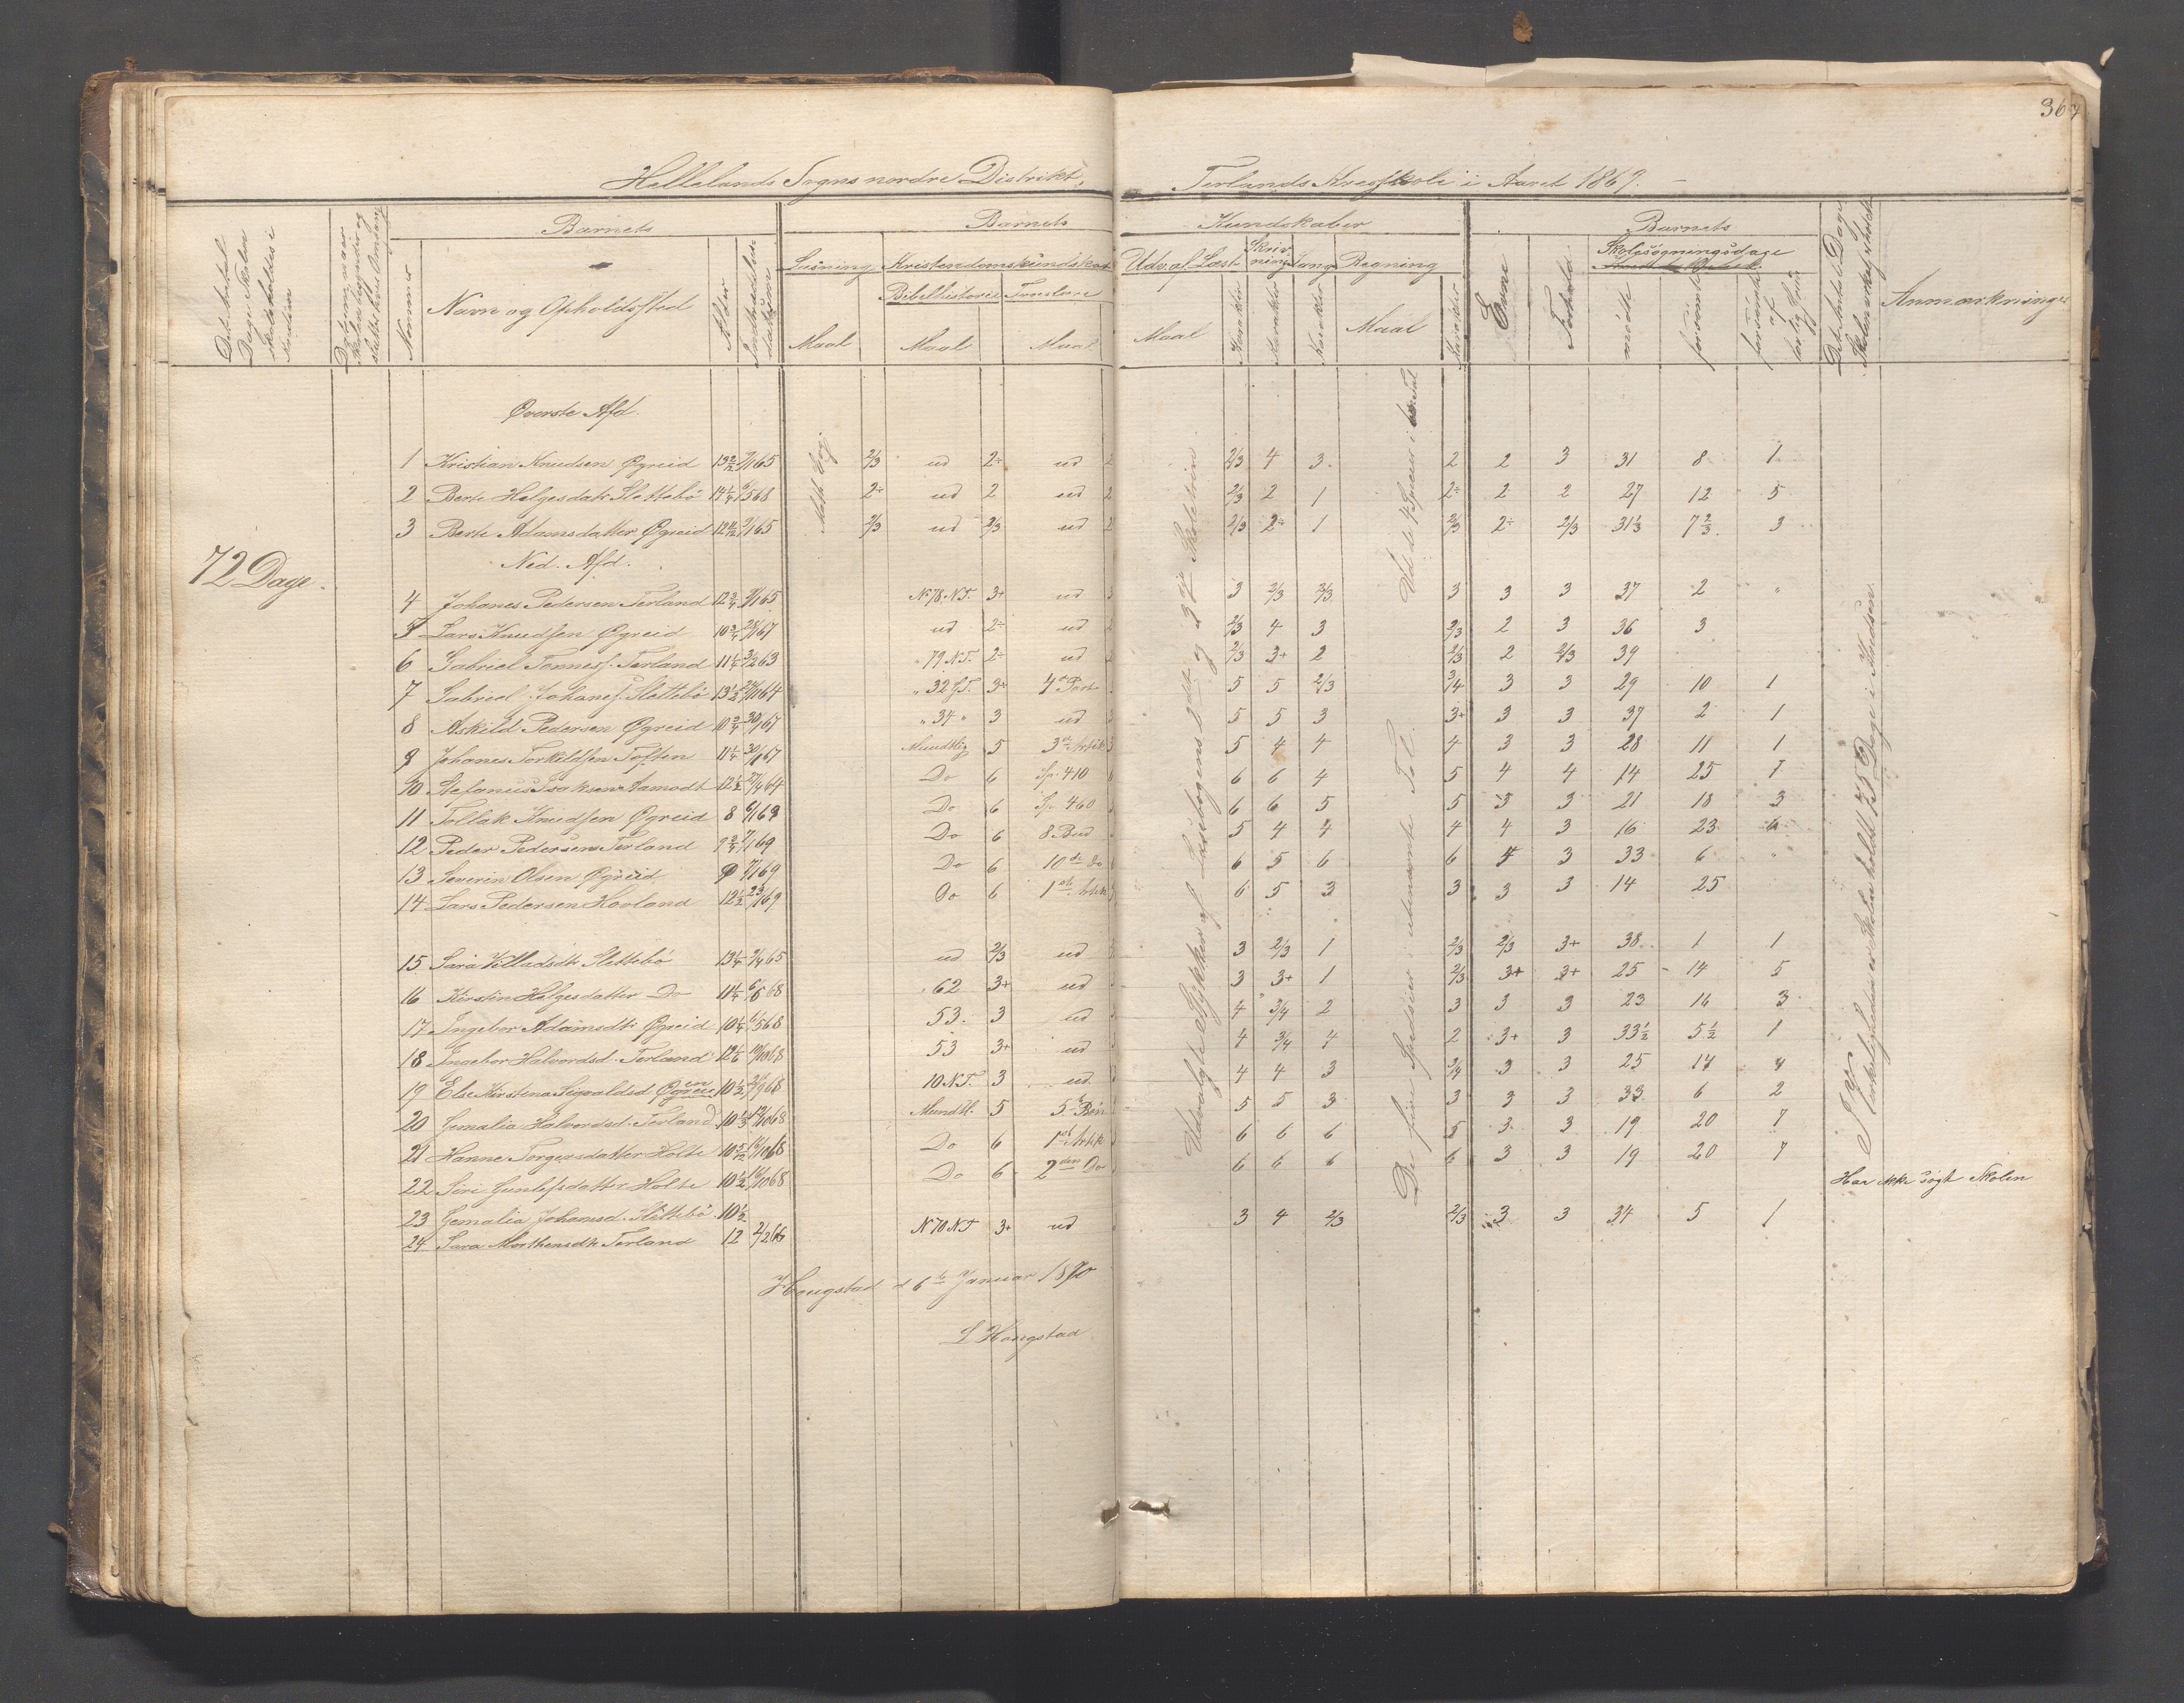 367
Hellelands Sogns nordre Distrikt, Terlands Kredsskole i Aaret 1869.
Det Antal Dage Skolen skal holdes i Kredsen
Datum naar Skolen begynder og slutter hver Omgang
Barnets
Nummer
Navn og Opholdssted
Alder
Indtrædelsesdatum
Barnets Kundskaber
Læsning
Kristendomskundskab
Bibelhistorie
Troeslære
Udv. af Læseb.
Skrivning
Sang
Regning
Maal
Maal
Maal
Maal
Karakter
Karakter
Karakter
Maal
Karakter
Barnets
Evne
Forhold
Skolesøgningsdage
mødte
forsømte
forsømte af lovlig Grund
Det Antal Dage Skolen virkelig er holdt
Anmærkninger
Øverste Afd.
1 Kristian Knudsen Øgreid 13 2/12 7/1 65 2/3 ud 2÷ ud 2 2/3 4 3 2 2 3 31 8 1
2 Berte Helgesdatr Slettebø 14 1/4 6/5 68 2÷ ud 2 ud 2 2/3 2 1 2÷ 2 2 27 12 5
3 Berte Adamsdatter Øgreid 12 11/12 7/1 65 2/3 ud 2/3 ud 2 2/3 2÷ 1 2/3 2÷ 2/3 31 1/3 7 2/3 3
Ned. Afd.
72 Dage.
4 Johanes Pedersen Terland 12 3/4 9/1 65 N 78. N.T. 3+ ud 3 3 2/3 2/3 3 3 3 37 2 "
5 Lars Knudsen Øgreid 10 3/4 28/1 67 ud 2÷ ud 2 2/3 4 3 2/3 2 3 36 3
6 Gabriel Tønness. Terland 11 1/4 3/2 63 " 79 N.T. 2÷ ud 2/3 3+ 2 2/3 2 2/3 39
7 Gabriel Johanes. Slettebø 13 1/2 24/10 64 " 32 G.T. 3+ 4de Part 5 5 2/3 3/4 3 3 29 10 1
8 Askild Pedersen Øgreid 10 3/4 30/1 67 " 34 " 3 ud 5 5 3 3+ 3 3 37 2 1
9 Johanes Torkildsen Toften 11 1/4 30/1 67 Mundtlig 5 3die Artik 3 5 4 4 4 3 3 28 11 1
10 Stefanus Isaksen Aamodt 12 1/2 27/4 64 Do 6 Sp. 410 6 6 4 5 4 4 14 25 1
11 Tollak Knudsen Øgreid 8 6/1 69 Do 6 Sp 460 6 6 5 5 5 3 21 18 3
12 Peder Pedersen Terland 9 3/4 7/1 69 Do 6 8 Bud 5 4 4 4 4 3 16 23 6
13 Severin Olsen Øgreid 9 7/1 69 Do 6 10de Do 6 5 6 6 4 3 33 6 "
14 Lars Pedersen Hovland 12 1/2 23/1 69 Do 6 1ste Artik 6 5 3 3 3 3 14 25
15 Sara Villadsdtr Slettebø 13 1/4 9/4 65 ud 2/3 ud 3 2/3 1 2/3 2/3 3+ 38 1 1
16 Kirstin Helgesdatter Do 11 1/4 6/5 68 62 3+ ud 3 3+ 1 2/3 3+ 3+ 25 14 5
17 Ingebor Adamsdtr Øgreid 10 1/4 6/5 68 53. 3 ud 4 3/4 2 3 3 3 23 16 3
18 Ingebor Halvordsd. Terland 12 1/6 19/10 68 53 3+ ud 4 3/4 4 2 3+ 3 33 1/2 5 1/2 1
19 Else Kirstena Sigvaldsd Øgreid 10 1/2 68 10 N.T. 3 ud. 4 4 3 3/4 3 3 25 14 4
20 Gemalia Halvordsd. Terland 10 1/3 19/10 68 Mundtl. 5 5te Bøn 5 5 3 3 3 3 33 6 2
21 Hanne Torgersdatter Holte 10 5/12 19/10 68 Do 6 1ste Artik 6 6 6 5 3 3 19 20 7
22 Siri Gunlefsdatter Holte 10 1/2 19/10 68 Do 6 2den Do 6 6 6 6 3 3 19 20 7
23 Gemalia Johannsd. Slettebø 10 1/2 Har ikke søgt Skolen
24 Sara Morthensdtr Terland 12 2/2 66 N 70 N.T. 3+ ud 3 4 2/3 2/3 3 3 34 5 1
Udvalgte Stykker af Læsebogens 2det og 3die Skoletrin.
De fire Spedsier i ubenævnte Tal.
Ud de 4 Specier i Tal
I Virkeligheden er Skolen holdt 78 Dage i Kredsen.
Hougstad d 6te Januar 1870
L Hougstad